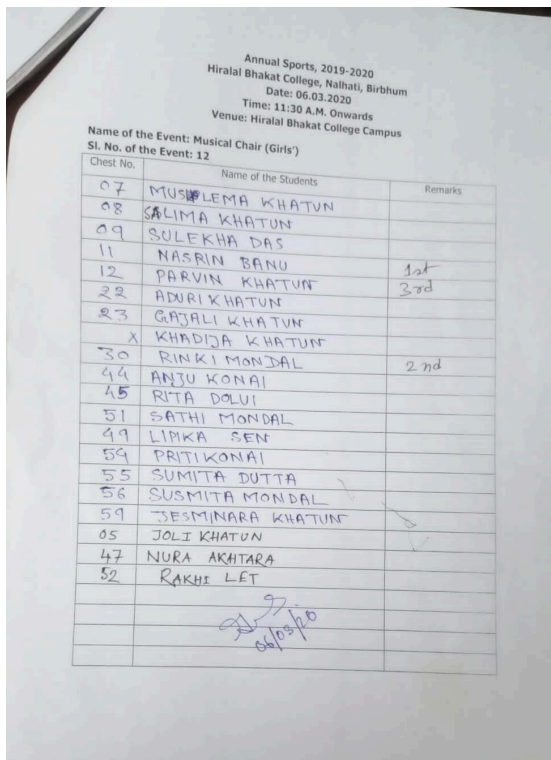 Annual Sports, 2019-2020
Hiralal Bhakat College, Nalhati, Birbhum
Date: 06.03.2020
Time: 11:30 A.M. Onwards
Venue: Hiralal Bhakat College Campus
Name of the Event: Musical Chair (Girls')
Sl. No. of the Event: 12
Chest No. Name of the Students Remarks
07 MUSLEMA KHATUN
08 SALIMA KHATUN
09 SULEKHA DAS
11 NASRIN BANU 1st
12 PARVIN KHATUN 3rd
22 ADURI KHATUN
23 GAJALI KHATUN
X KHADIJA KHATUN
30 RINKI MONDAL 2nd
44 ANJU KONAI
45 RITA DOLUI
51 SATHI MONDAL
49 LIPIKA SEN
54 PRITI KONAI
55 SUMITA DUTTA
56 SUSMITA MONDAL
59 JESMINARA KHATUN
05 JOLI KHATUN
47 NURA AKHTARA
52 RAKHI LET
06/03/20